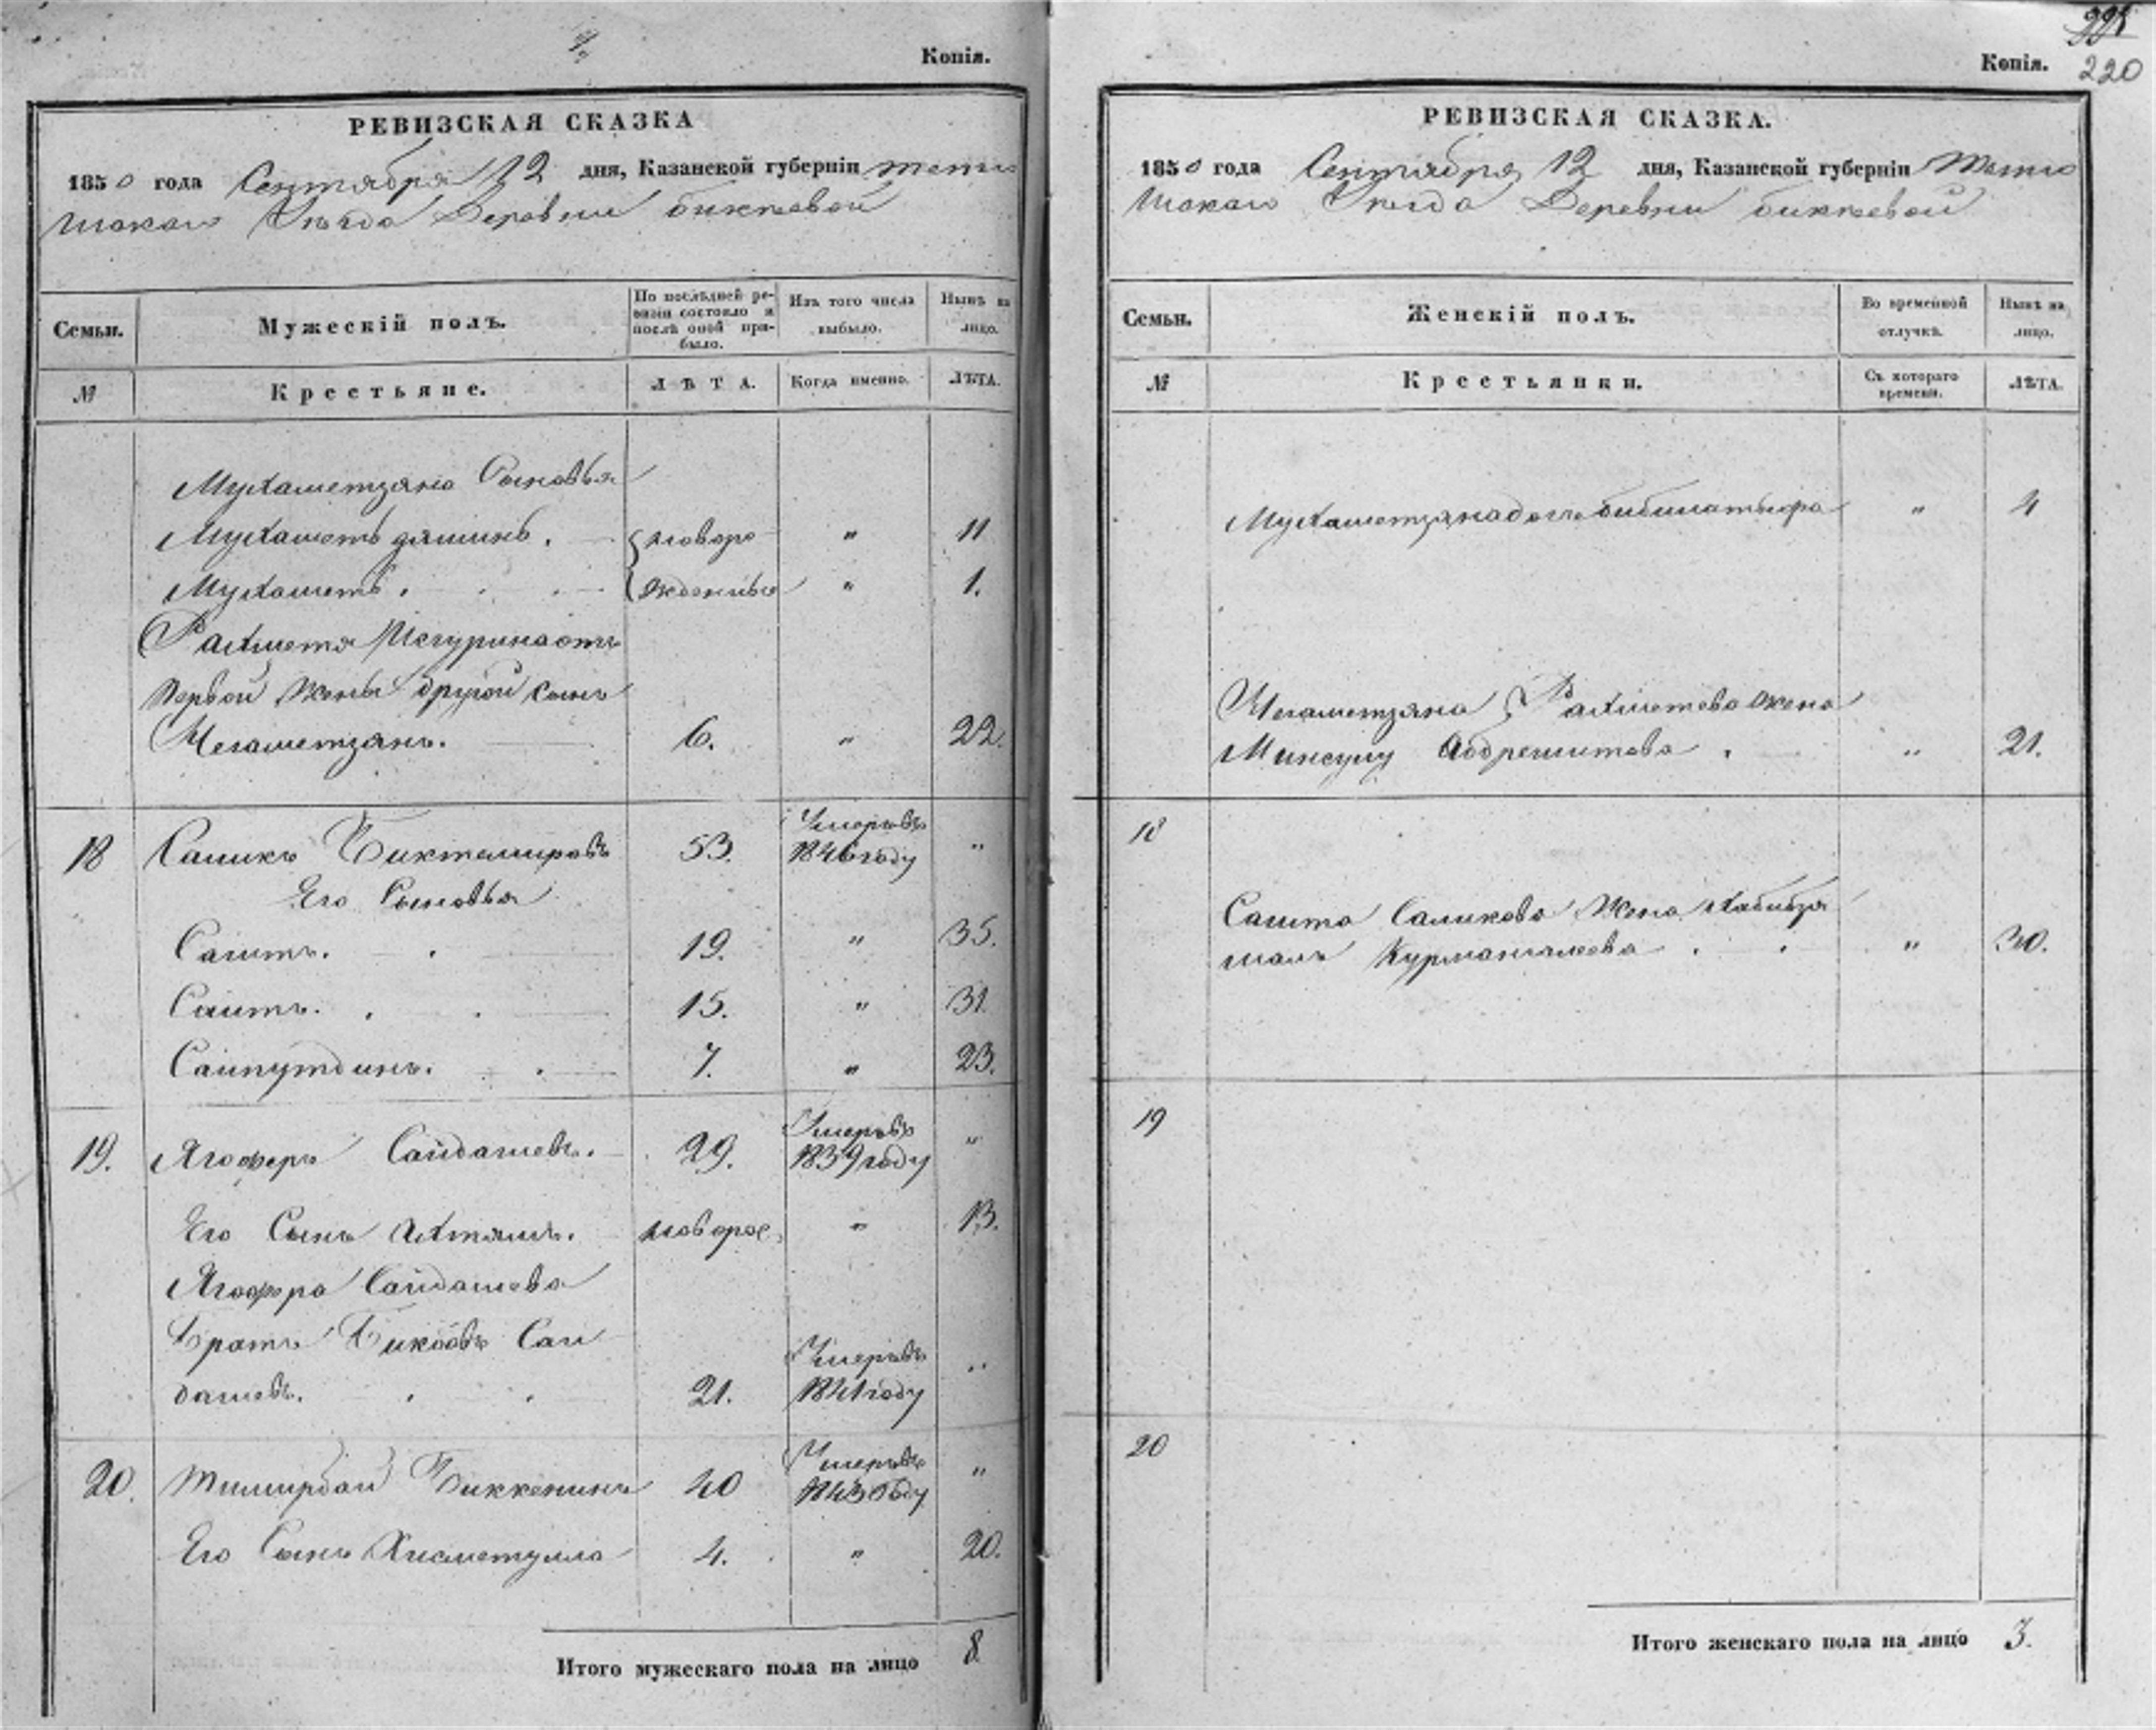 Копія.
РЕВИЗСКАЯ СКАЗКА
1850 года Сентября 12 дня, Казанской губерніи Тетю
шскаго Уѣзда Деревни биктѣевой
Семьи.
Мужескій полъ.
По послѣдней ре-
визіи состояло и
послѣ оной при-
было.
Изъ того числа
выбыло.
Нынѣ на
лицо.
№
Крестьяне.
ЛѢТА.
Когда именно.
ЛѢТА.
Мухаметзяна Сыновья
Мухаметь . новоро „ 11
Мухаметь . жденные „ 1.
Рахметя от
первой жены другой сынъ
Мегаметзянъ. 6. „ 22.
18 Саликъ Биктемировъ 53. Умеръ въ 1846 году „
Его Сыновья
Сагитъ. 19. „ 35.
Саитъ. 15. „ 31.
Сайпутдинъ. 7. „ 23.
19. Ягоферъ Сайдашевъ. 29. Умеръ въ 1839 году „
Его Сынъ Ахтямъ. новорож. „ 13.
Ягофера Сайдашева
Братъ Сай
дашевъ. 21. Умеръ въ 1841 году „
20. Тимирбай Биккенинъ 40 Умеръ въ 1843 году „
Его Сынъ Хисметулла 4. „ 20.
Итого мужескаго пола на лицо 8.
221
Копія. 220
РЕВИЗСКАЯ СКАЗКА.
1850 года Сентября 12 дня, Казанской губерніи Тетю
шскаго Уѣзда Деревни биктѣевой
Семьи.
Женскій полъ.
Во временной
отлучкѣ.
Нынѣ на
лицо.
№
Крестьянки.
Съ котораго
времени.
ЛѢТА.
Мухаметзяна дочь „ 4
Мегаметзяна Рахметева жена
Минсулу Абдрешитова . „ 21.
18
Сагита Саликова Жена Хабибзя
малъ Курмангалеева . . „ 30.
19
20
Итого женскаго пола на лицо 3.